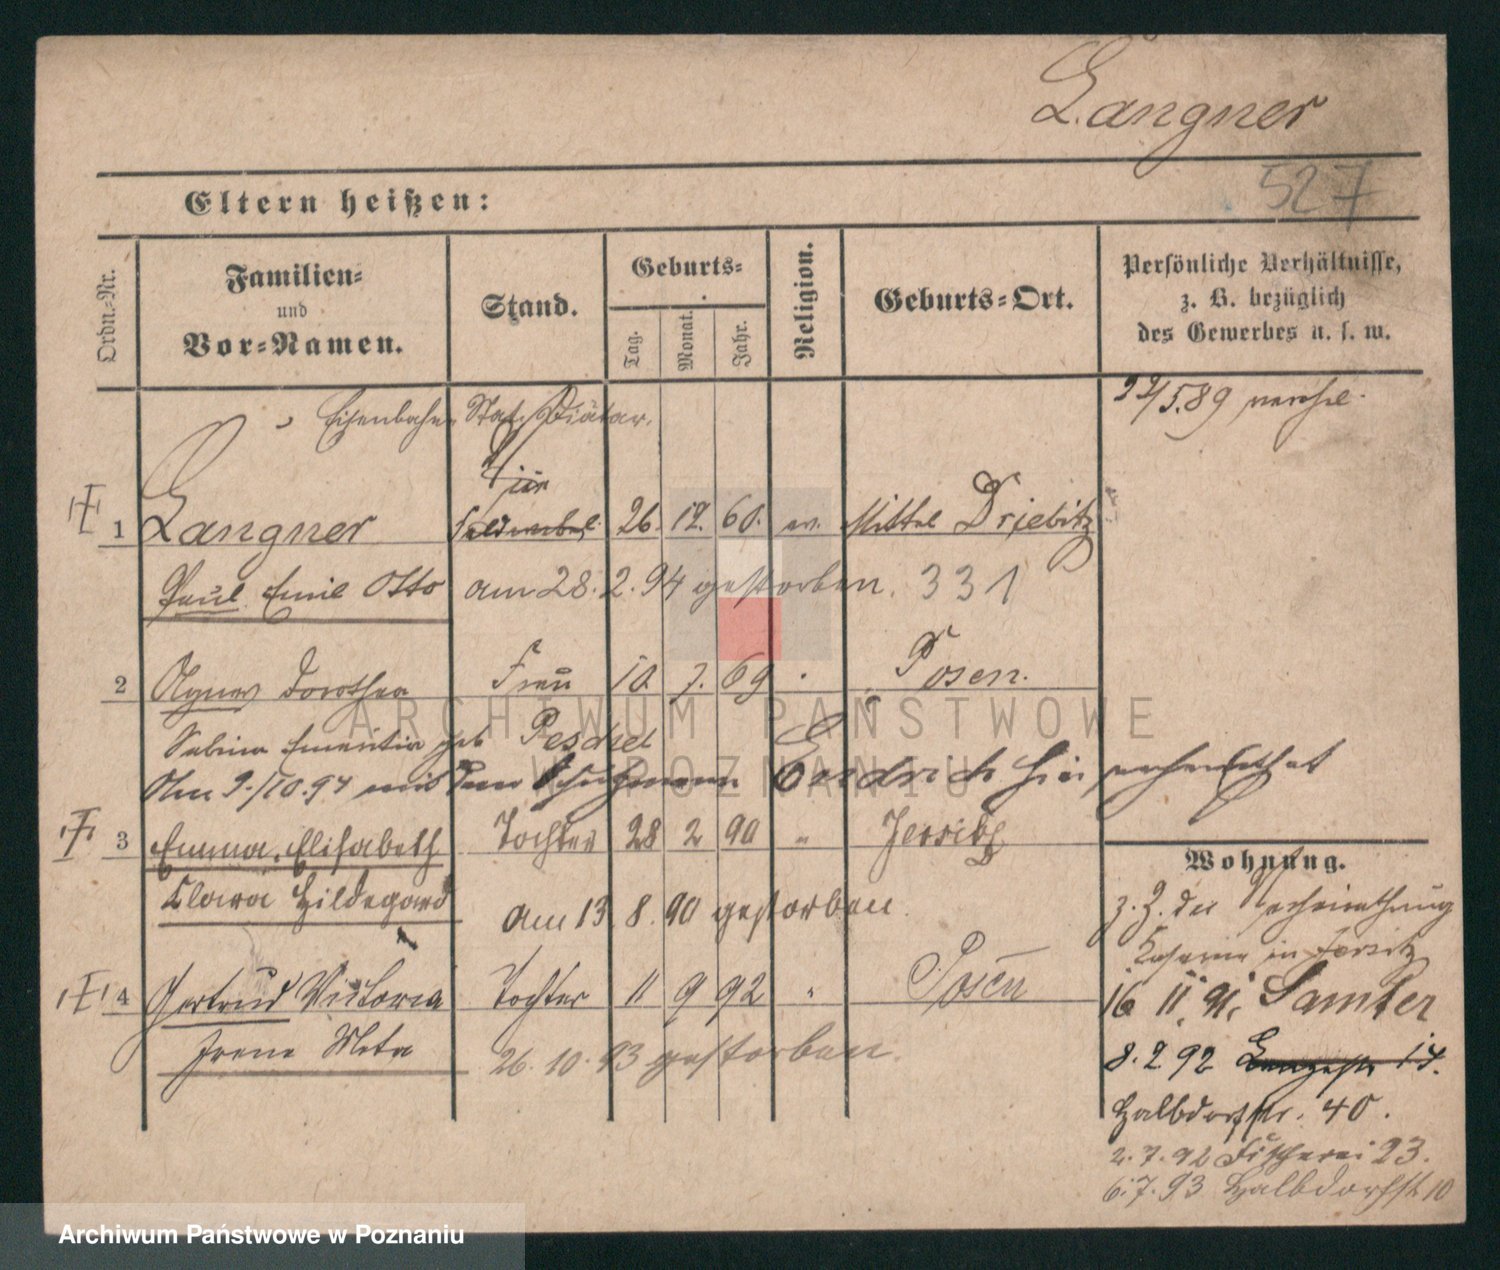 Langner
527
Eltern heißen:
Ordn.-Nr.
Familien-
und
Vor-Namen.
Stand.
Geburts-
Tag.
Monat.
Jahr.
Religion.
Geburts-Ort.
Persönliche Verhältnisse,
z. B. bezüglich
des Gewerbes u. s. w.
Eisenbahn Stat. Diätar.
22/5.89 verehel.
1 Langner Feldwebel 26. 12. 60. ev. Mittel Driebitz
Paul Emil Otto am 28. 2. 94 gestorben. 331
2 Agnes Dorothea Frau 10. 7. 69 Posen.
Sabina Emerentia geb Peschel
Am 9./10.94 mit dem Schutzmann Endrich hier verheirathet
3 Emma, Elisabeth Tochter 28 2 90 " Jersitz
Clara Hildegard am 13. 8. 90 gestorben.
4 Gertrud Victoria Tochter 11 9 92 " Posen
Irene Meta 26. 10. 93 gestorben.
Wohnung.
z. Z. der Verheirathung
Kaserne in Jersitz
16 11. 91. Samter
8. 2 92 Langestr 14.
Halbdorfstr. 40.
2. 7. 92 Fischerei 23.
6. 7. 93 Halbdorfstr 10
ARCHIWUM PAŃSTWOWE
W POZNANIU
Archiwum Państwowe w Poznaniu